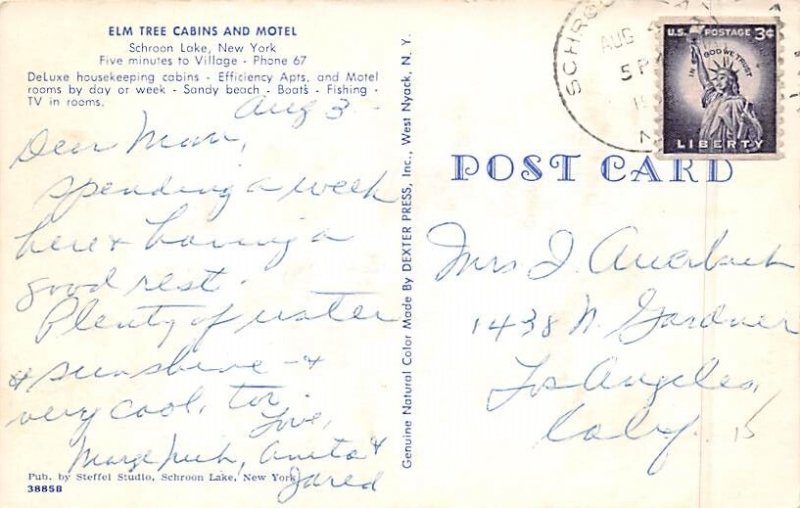 ELM TREE CABINS AND MOTEL
Schroon Lake, New York
Five minutes to Village - Phone 67
DeLuxe housekeeping cabins - Efficiency Apts. and Motel
rooms by day or week - Sandy beach - Boats - Fishing -
TV in rooms.
Aug 3 -
Dear Mom,
Spending a week
here & having a
good rest.
Plenty of water
& sunshine - &
very cool, too.
Love,
Marge, Anita &
Jared
Pub. by Steffel Studio, Schroon Lake, New York
3885B
Genuine Natural Color Made By DEXTER PRESS, Inc., West Nyack, N. Y.
SCHROO
AUG
5 P
19
N
U.S. POSTAGE 3¢
IN GOD WE TRUST
LIBERTY
POST CARD
Mrs J. Auerbach
1438 N. Gardner
Los Angeles,
Calif.